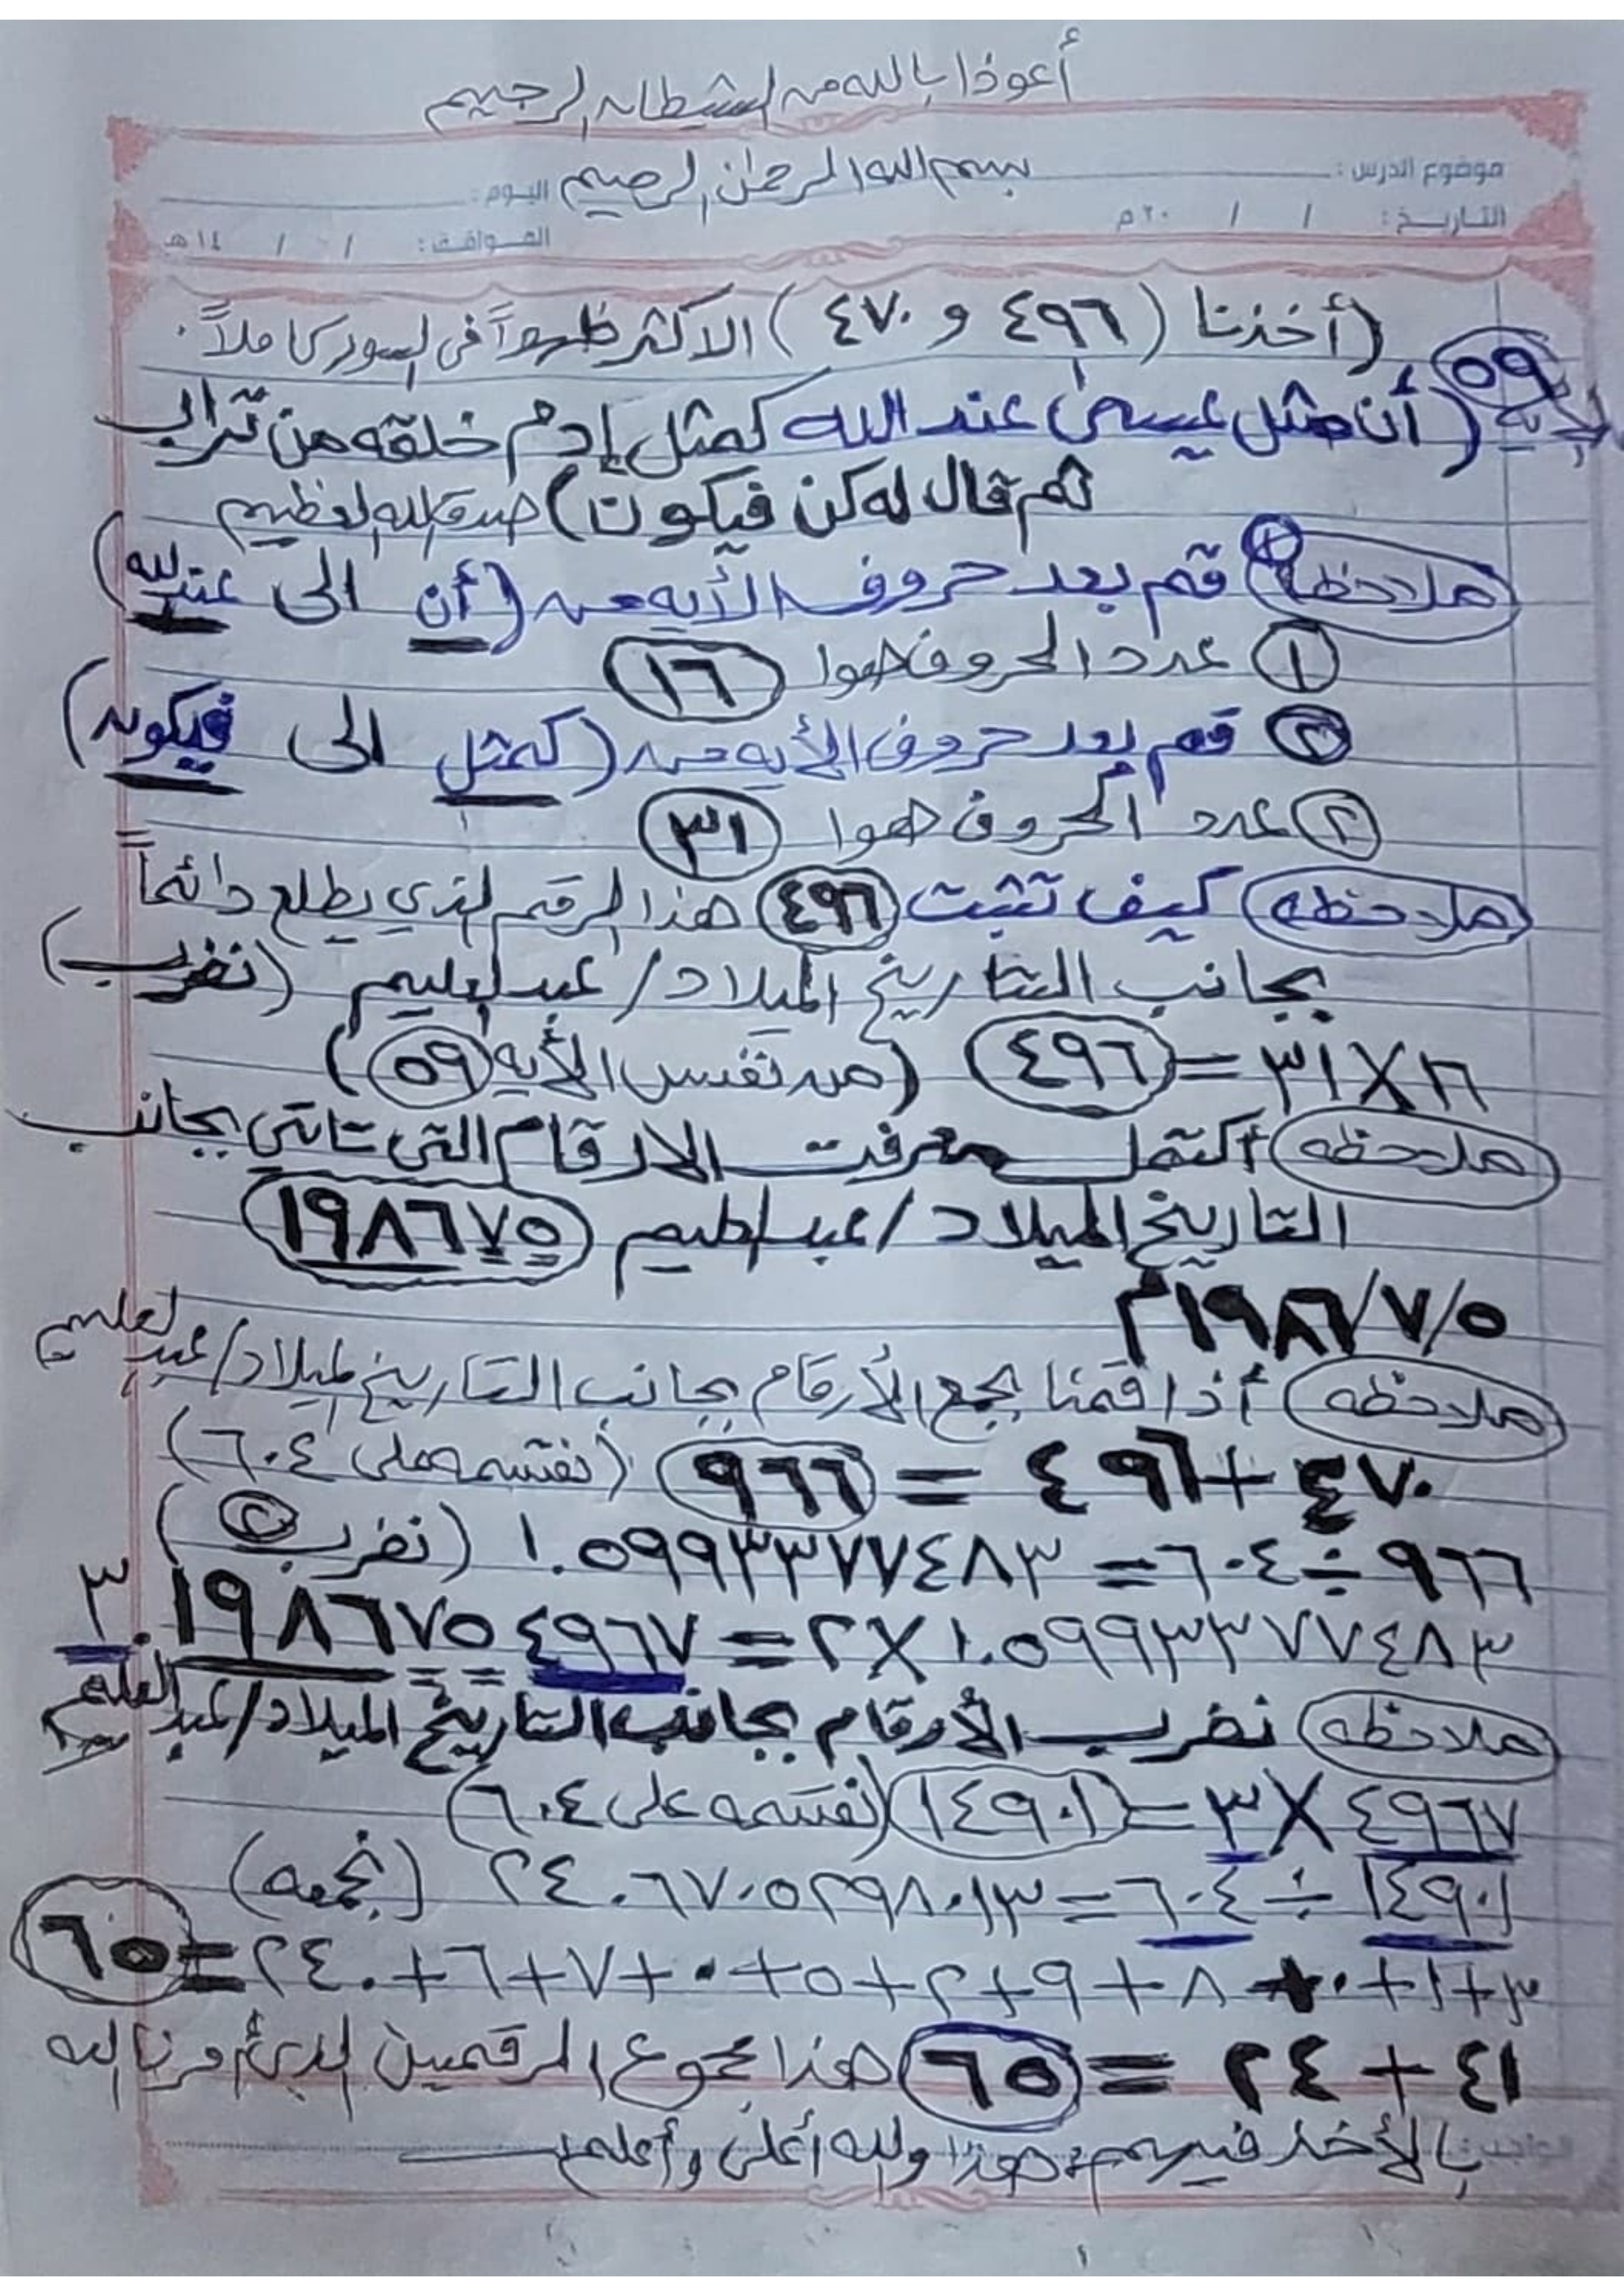 أعوذا بالله من الشيطان الرجيم
بسم الله الرحمن الرحيم
موضوع الدرس :
اليوم :
التاريخ : / / ٢٠ م
الموافق : / / ١٤ هـ
(أخذنا (٤٩٦ و ٤٧٠) الاكثر ظهوراً في السور كاملاً .
٥٩ (أن مثل عيسى عند الله كمثل إدم خلقه من تراب
ثم قال له كن فيكون) صدق الله العظيم
ملاحظه ١ قم بعد حروف الأيه من (أن الى عند الله)
١ عدد الحروف هوا ١٦
٢ قم بعد حروف الأيه من (كمثل الى فيكون)
٢ عدد الحروف هوا ٣١
ملاحظه كيف تثبت ٤٩٦ هذا الرقم الذي يطلع دائماً
بجانب التاريخ الميلاد/ عبدالعليم (نضرب)
١٦ X ٣١ = ٤٩٦ (من نفس الأيه ٥٩)
ملاحظه أكتمل معرفت الارقام التي تاتي بجانب
التاريخ الميلاد/ عبدالعليم ١٩٨٦٧٥
٥/٧/١٩٨٦م
ملاحظه أذا قمنا بجمع الأرقام بجانب التاريخ لميلاد/ عبدالعليم
٤٧٠ + ٤٩٦ = ٩٦٦ (نقسمه على ٦٠٤)
٩٦٦ ÷ ٦٠٤ = ١.٥٩٩٣٣٧٧٤٨٣ (نضرب ٢)
١.٥٩٩٣٣٧٧٤٨٣ X ٢ = ٣.١٩٨٦٧٥٤٩٦٧
ملاحظه نضرب الأرقام بجانب التاريخ الميلاد/ عبدالعليم
٤٩٦٧ X ٣ = ١٤٩٠١ (نقسمه على ٦٠٤)
١٤٩٠١ ÷ ٦٠٤ = ٢٤.٦٧٠٥٢٩٨٠١٣ (نجمعه)
٣+١+٠+٨+٩+٢+٥+٠+٧+٦+٢٤.=٦٥
٤١ + ٢٤ = ٦٥ هذا مجموع الرقمين الذي أمرنا الله
بالأخذ فيهم هذا والله أعلى وأعلم